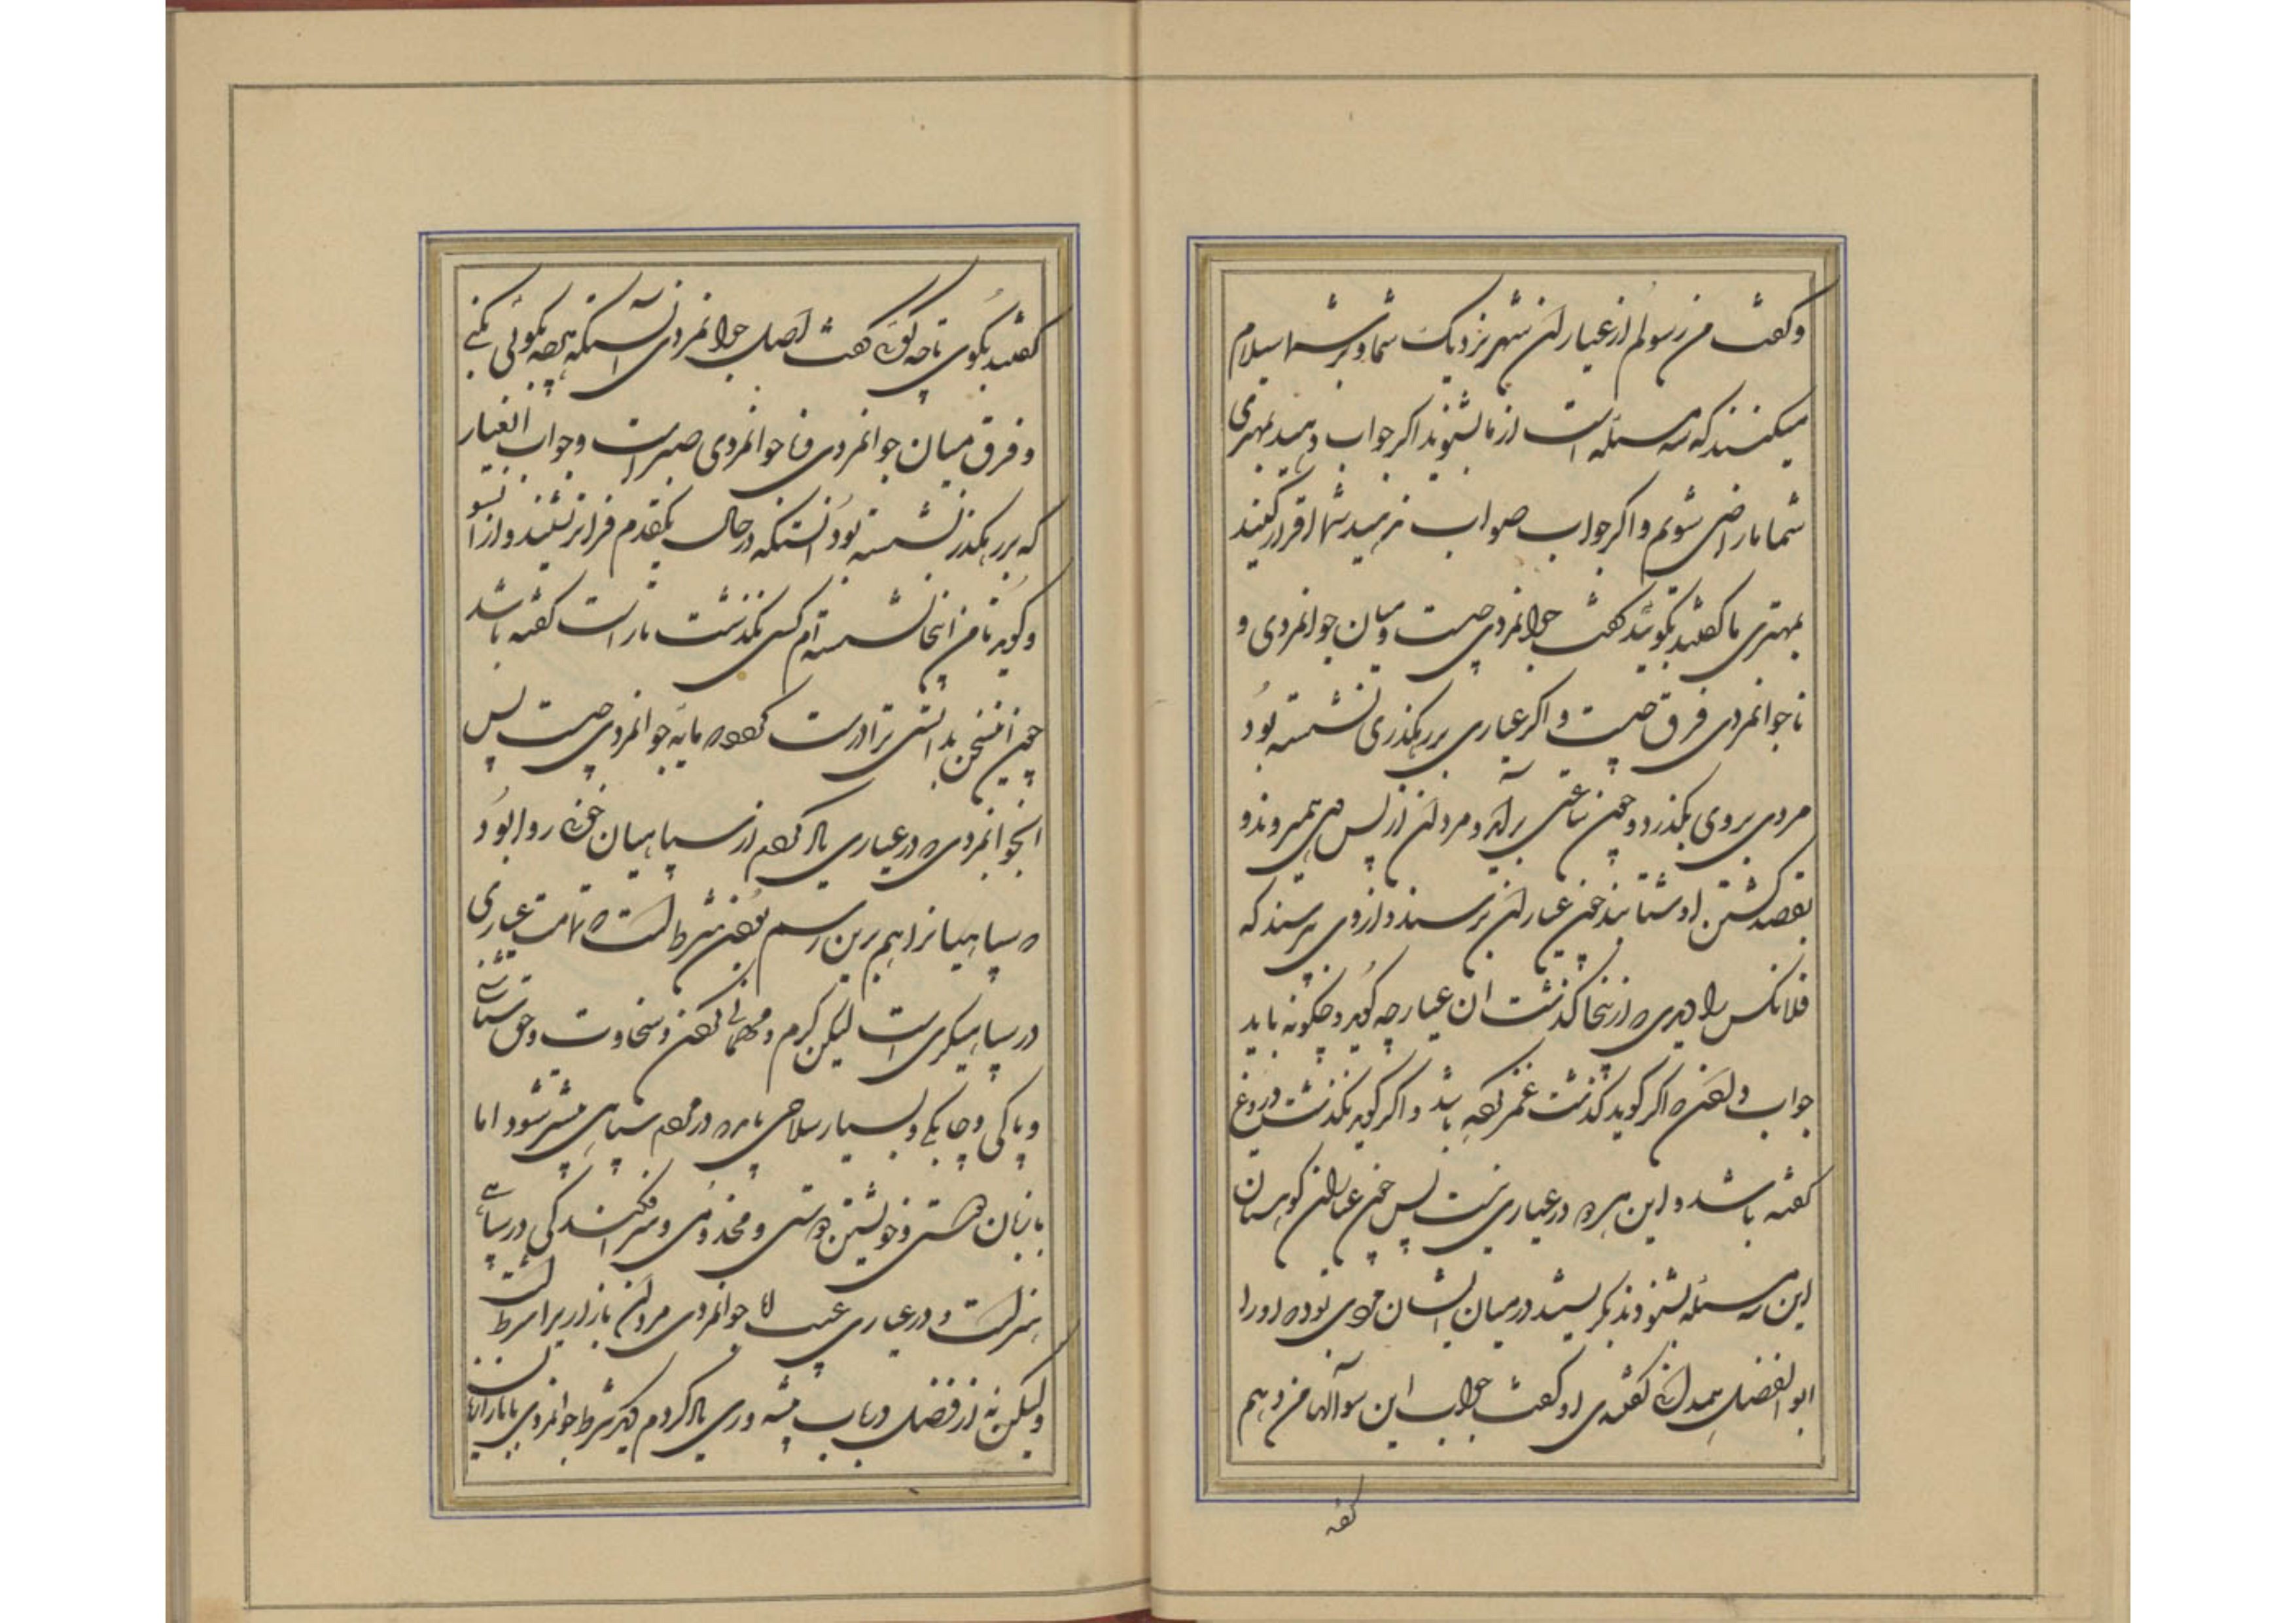 و گفت من رسولم از عیاران شهر نزدیک شما و بر شما سلام
میکنند که سه مسئله است از ما بشنوید اگر جواب دهید بمهتری
شما ما راضی شویم و اگر جواب صواب ندهید شما اقرار کنید
بمهتری ما گفتند بگوئید گفت جوانمردی چیست و میان جوانمردی و
ناجوانمردی فرق چیست و اگر عیاری بر رهگذری نشسته بود
مردی بر وی بگذرد و چون ساعتی برآید و مردان از پس وی همیروند و
بقصد کشتن او شتابند چون عیاران برسند و از وی پرسند که
فلانکس را دیدی که از اینجا گذشت آن عیار چه گوید و چگونه باید
جواب دادن که اگر گوید گذشت غمز کرده باشد و اگر گوید نگذشت دروغ
گفته باشد و این هر دو در عیاری نیست پس چون عیاران کوهستان
این سه مسئله بشنودند بنگریستند در میان ایشان مردی بود که او را
ابوالفضل همدانی گفتندی او گفت جواب این سؤالها من دهم
گفتند
گفتند بگوی تا چه گوئی گفت اصل جوانمردی آنستکه هرچه بگوئی بکنی
و فرق میان جوانمردی و ناجوانمردی صبر است و جواب آن عیار
که بر رهگذر نشسته بود آنستکه در حال یکقدم فراتر نشیند و از آنسو
و گوید تا من اینجا نشسته‌ام کسی نگذشت تا راست گفته باشد
چون این سخن بدانستی ترا درست کرده که مایه جوانمردی چیست پس
این جوانمردی که در عیاری یاد کردیم از سپاهیان جوئی روا بود
که سپاهیانرا هم برین رسم بودن شرط است که تمامت عیاری
در سپاهیگری است لیکن کرم و مهمانی کردن و سخاوت و حق شناسی
و پاکی و چابکی و بسیار سلاحی باید که در مردم سپاهی بیشتر شود اما
با زبان دوستی و خویشتن دوستی و مخدومی و سرافکندگی در سپاهی
هنر است و در عیاری عیب اما جوانمردی مردان بازار را شرطست
ولیکن نه از فضل در باب پیشه وری یاد کردم دیگر شرط جوانمردی